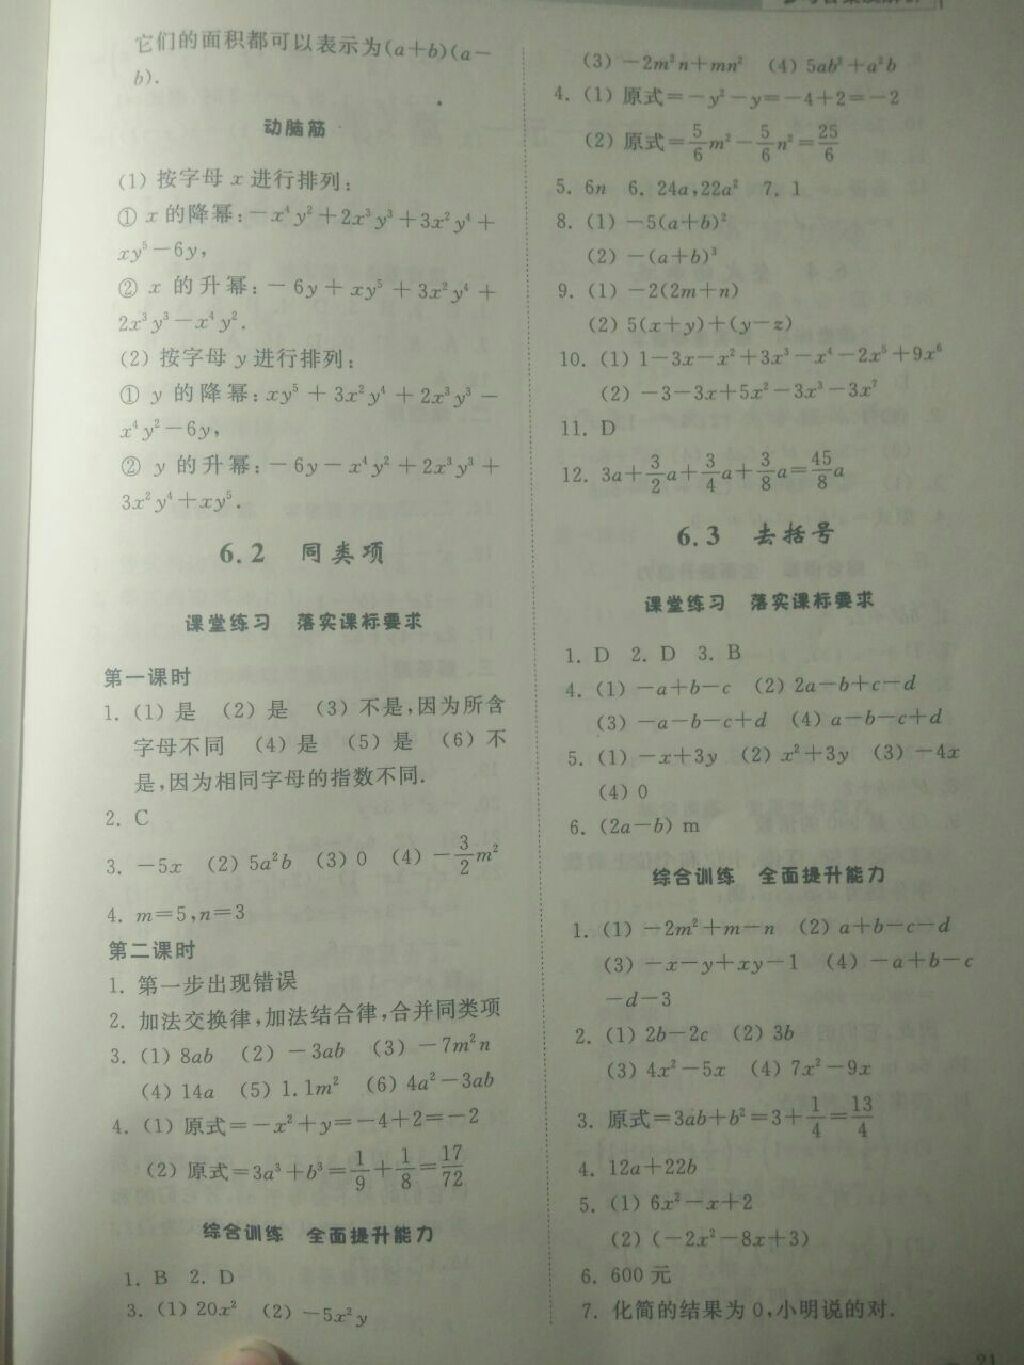 它们的面积都可以表示为(a+b)(a-
b).
动脑筋
(1) 按字母 x 进行排列:
① x 的降幂:-x⁴y²+2x³y³+3x²y⁴+
xy⁵-6y,
② x 的升幂:-6y+xy⁵+3x²y⁴+
2x³y³-x⁴y².
(2) 按字母 y 进行排列:
① y 的降幂:xy⁵+3x²y⁴+2x³y³-
x⁴y²-6y,
② y 的升幂:-6y-x⁴y²+2x³y³+
3x²y⁴+xy⁵.
6.2 同类项
课堂练习 落实课标要求
第一课时
1. (1) 是 (2) 是 (3) 不是,因为所含
字母不同 (4) 是 (5) 是 (6) 不
是,因为相同字母的指数不同.
2. C
3. -5x (2) 5a²b (3) 0 (4) -3/2m²
4. m=5,n=3
第二课时
1. 第一步出现错误
2. 加法交换律,加法结合律,合并同类项
3. (1) 8ab (2) -3ab (3) -7m²n
(4) 14a (5) 1.1m² (6) 4a²-3ab
4. (1) 原式=-x²+y=-4+2=-2
(2) 原式=3a³+b³=1/9+1/8=17/72
综合训练 全面提升能力
1. B 2. D
3. (1) 20x² (2) -5x²y
(3) -2m²n+mn² (4) 5ab³+a²b
4. (1) 原式=-y²-y=-4+2=-2
(2) 原式=5/6m²-5/6n²=25/6
5. 6n 6. 24a,22a² 7. 1
8. (1) -5(a+b)²
(2) -(a+b)³
9. (1) -2(2m+n)
(2) 5(x+y)+(y-z)
10. (1) 1-3x-x²+3x³-x⁴-2x⁵+9x⁶
(2) -3-3x+5x²-3x³-3x⁷
11. D
12. 3a+3/2a+3/4a+3/8a=45/8a
6.3 去括号
课堂练习 落实课标要求
1. D 2. D 3. B
4. (1) -a+b-c (2) 2a-b+c-d
(3) -a-b-c+d (4) a-b-c+d
5. (1) -x+3y (2) x²+3y (3) -4x
(4) 0
6. (2a-b) m
综合训练 全面提升能力
1. (1) -2m²+m-n (2) a+b-c-d
(3) -x-y+xy-1 (4) -a+b-c
-d-3
2. (1) 2b-2c (2) 3b
(3) 4x²-5x (4) 7x²-9x
3. 原式=3ab+b²=3+1/4=13/4
4. 12a+22b
5. (1) 6x²-x+2
(2) (-2x²-8x+3)
6. 600 元
7. 化简的结果为 0,小明说的对.